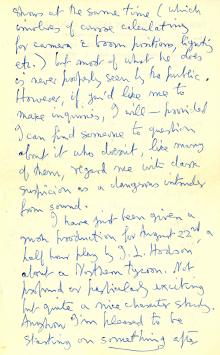 shows at the same time (which
involves of course calculating
for camera & boom positions, lights
etc.) but most of what he does
is never properly seen by the public.
However, if you'd like me to
make inquiries, I will — provided
I can find someone to question
about it who doesn't, like many
of them, regard me with dark
suspicion as a dangerous intruder
from sound.
I have just been given a
production for August 22nd, a
half hour play by J. L. Hodson,
about a Northern tycoon. Not
profound or particularly exciting
but quite a nice character study.
Anyhow I'm pleased to be
starting on something after